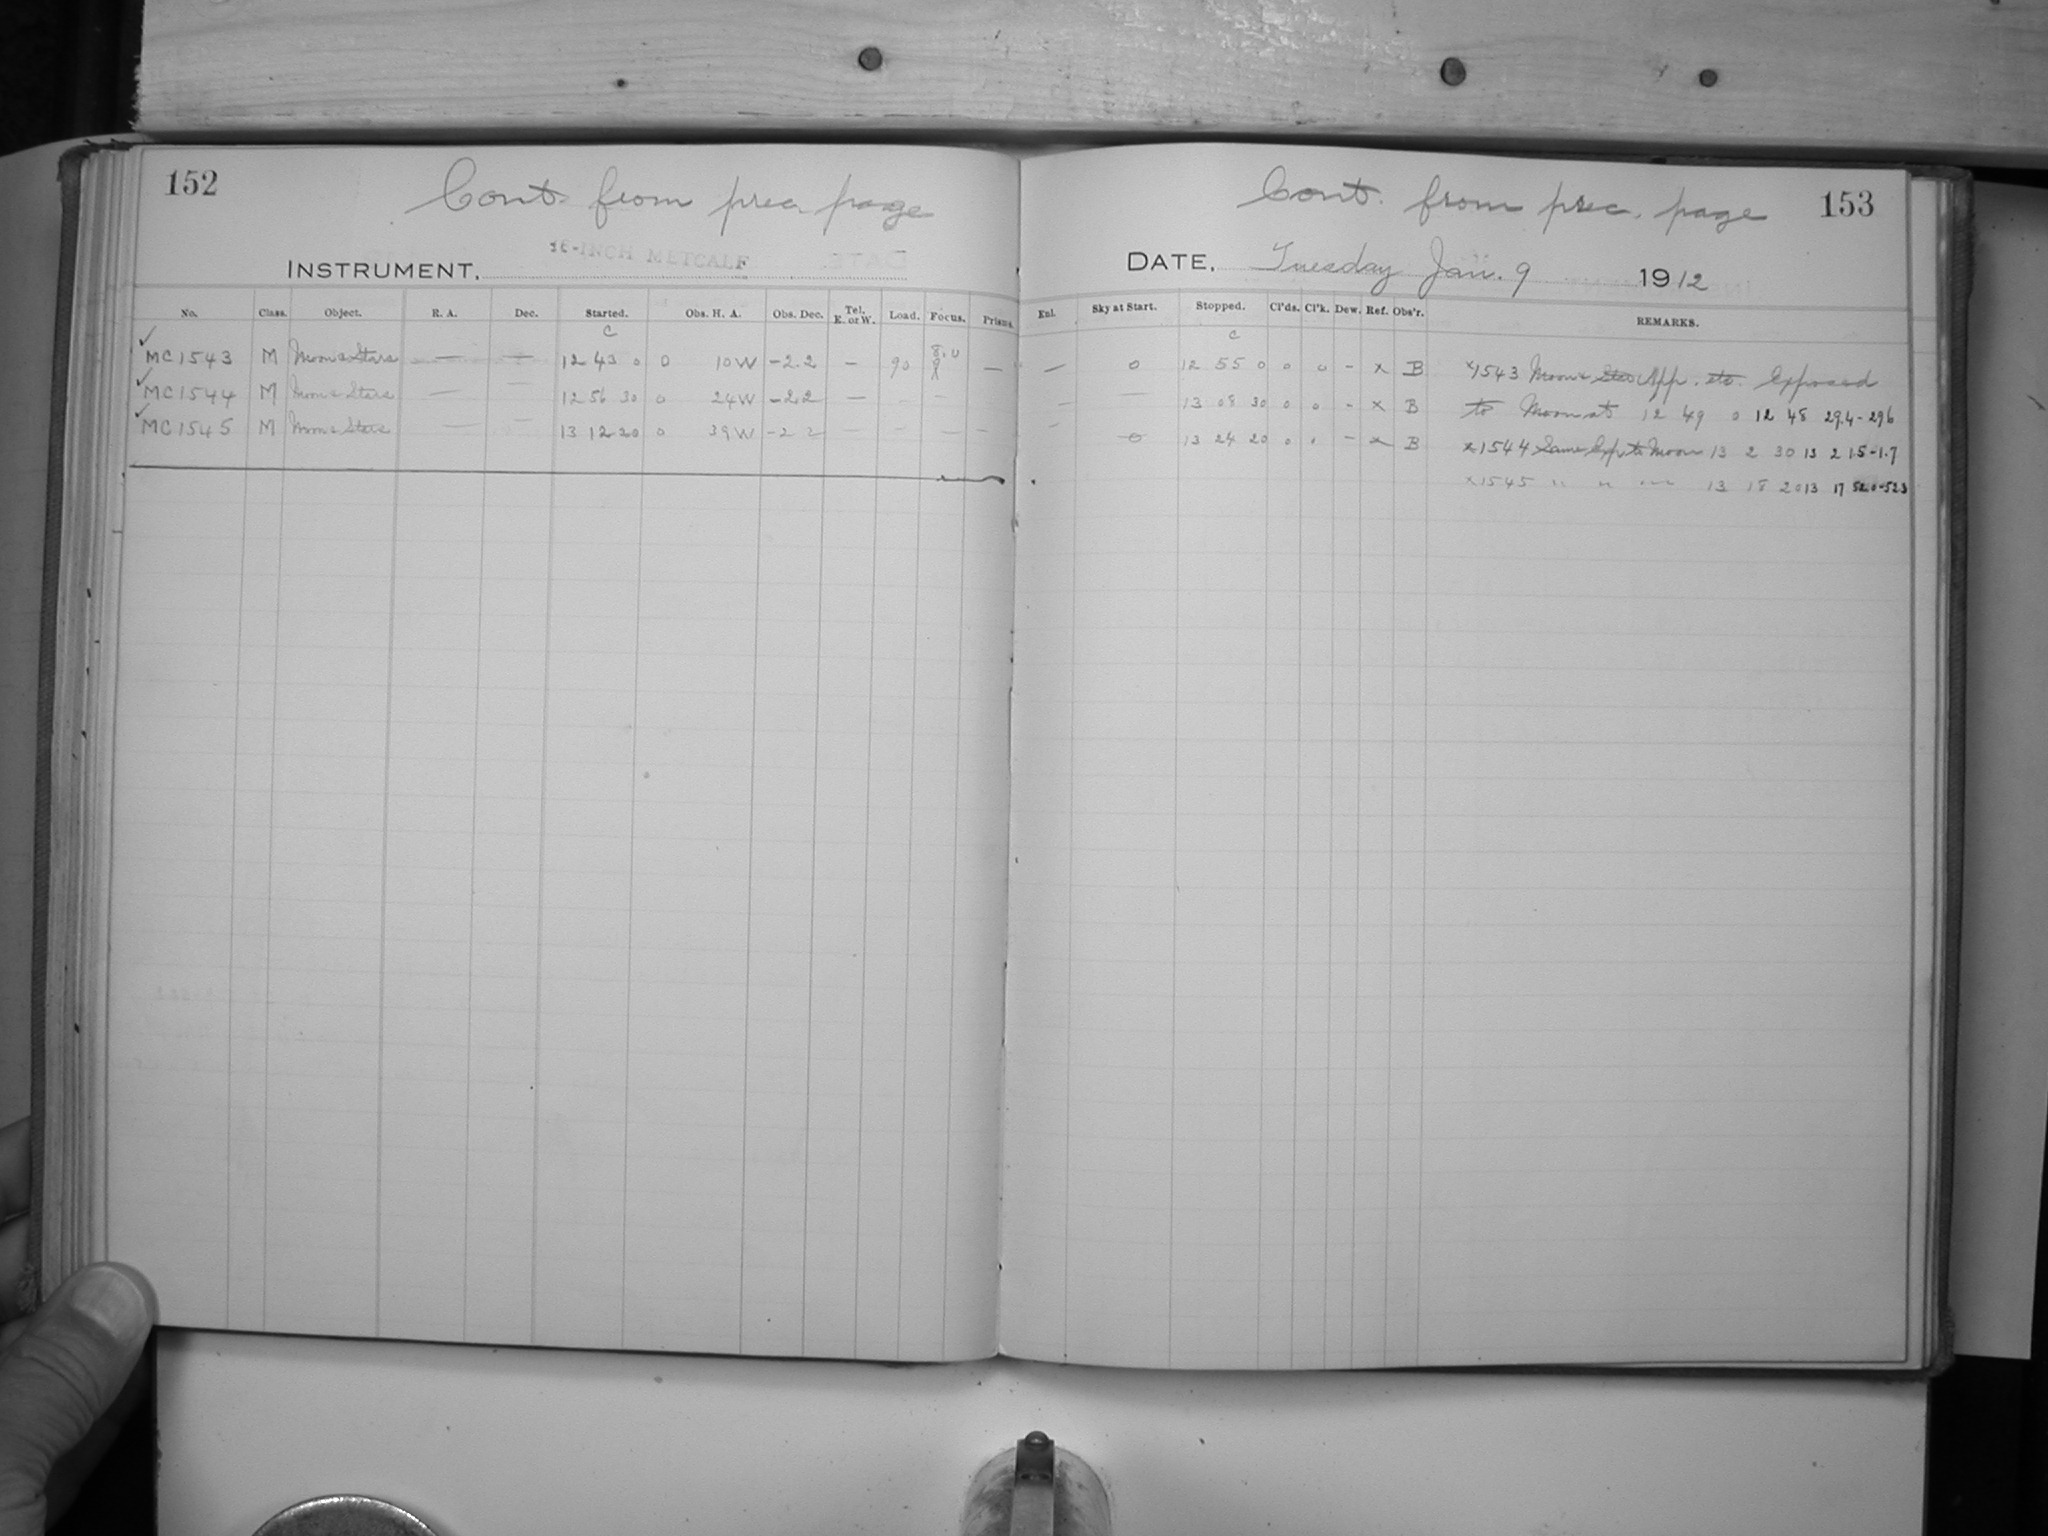 152
Cont. from prec. page
INSTRUMENT. 16-INCH METCALF
No. Class. Object. R. A. Dec. Started. Obs. H. A. Obs. Dec. Tel. E. or W. Load. Focus. Prisms.
C
✓ MC1543 M Moon & Stars — — 12 43 0 0 10W -2.2 — 90 8.0 —
✓ MC1544 M Moon & Stars — — 12 56 30 0 24W -2.2 — - -
✓ MC1545 M Moon & Stars — — 13 12 20 0 39W -2.2 — — — — —
Cont. from prec. page 153
DATE. Tuesday Jan. 9 1912
Enl. Sky at Start. Stopped. Cl'ds. Cl'k. Dew. Ref. Obs'r. REMARKS.
C
— 0 12 55 0 0 0 - x B x1543 Moon & App. Exposed
— — 13 08 30 0 0 - x B to Moon at 12 49 0 12 48 29.4-29.6
- 0 13 24 20 0 - x B x1544 Same Exp. to Moon 13 2 30 13 2 1.5-1.7
x1545 " " " 13 18 20 13 17 52.0-52.3